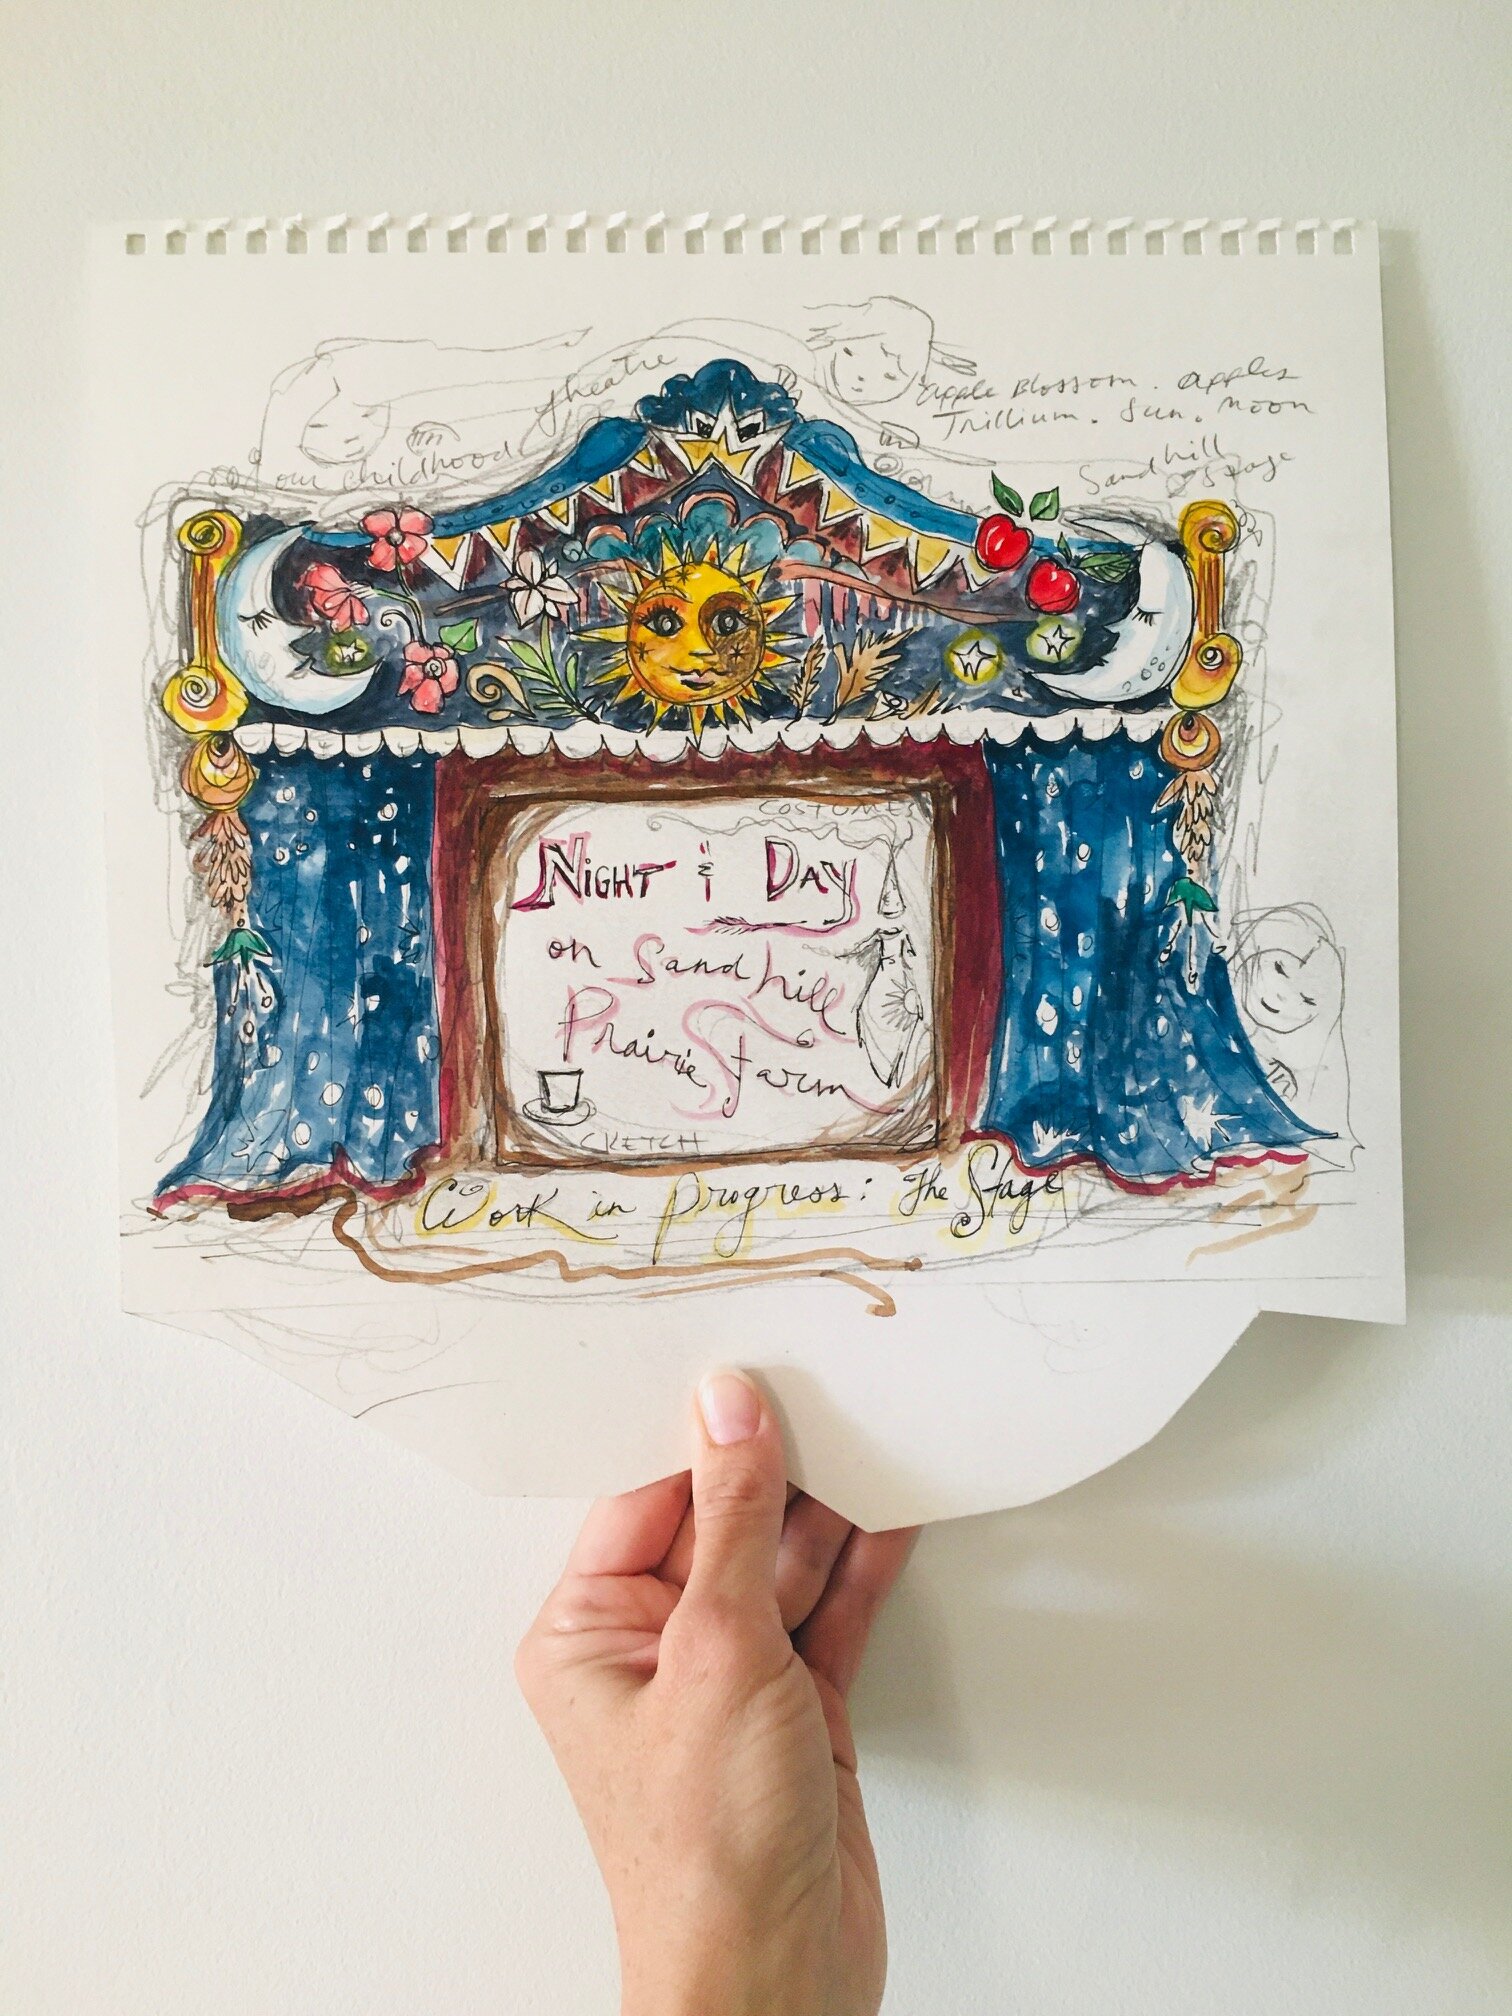 theatre
our childhood
Apple Blossom. Apples
Trillium. Sun. Moon
Sandhill
Stage
COSTUMES
NIGHT & DAY
on Sandhill
Prairie Farm
SKETCH
Work in progress: The Stage